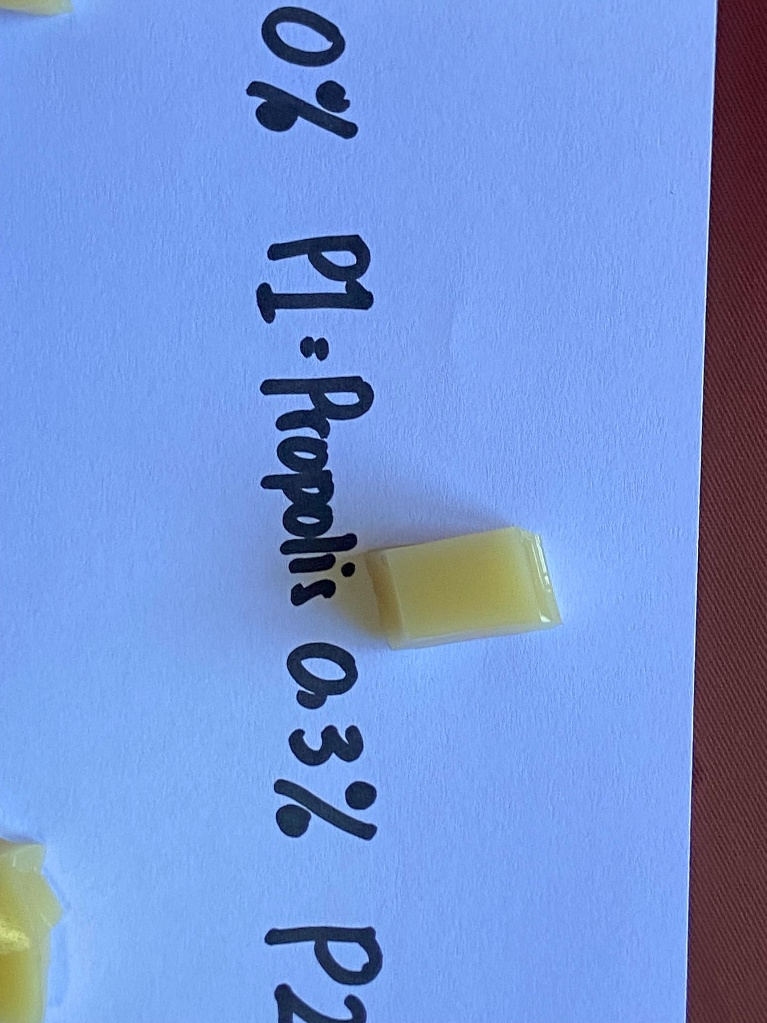 0% P1 = Propolis 0,3% P2